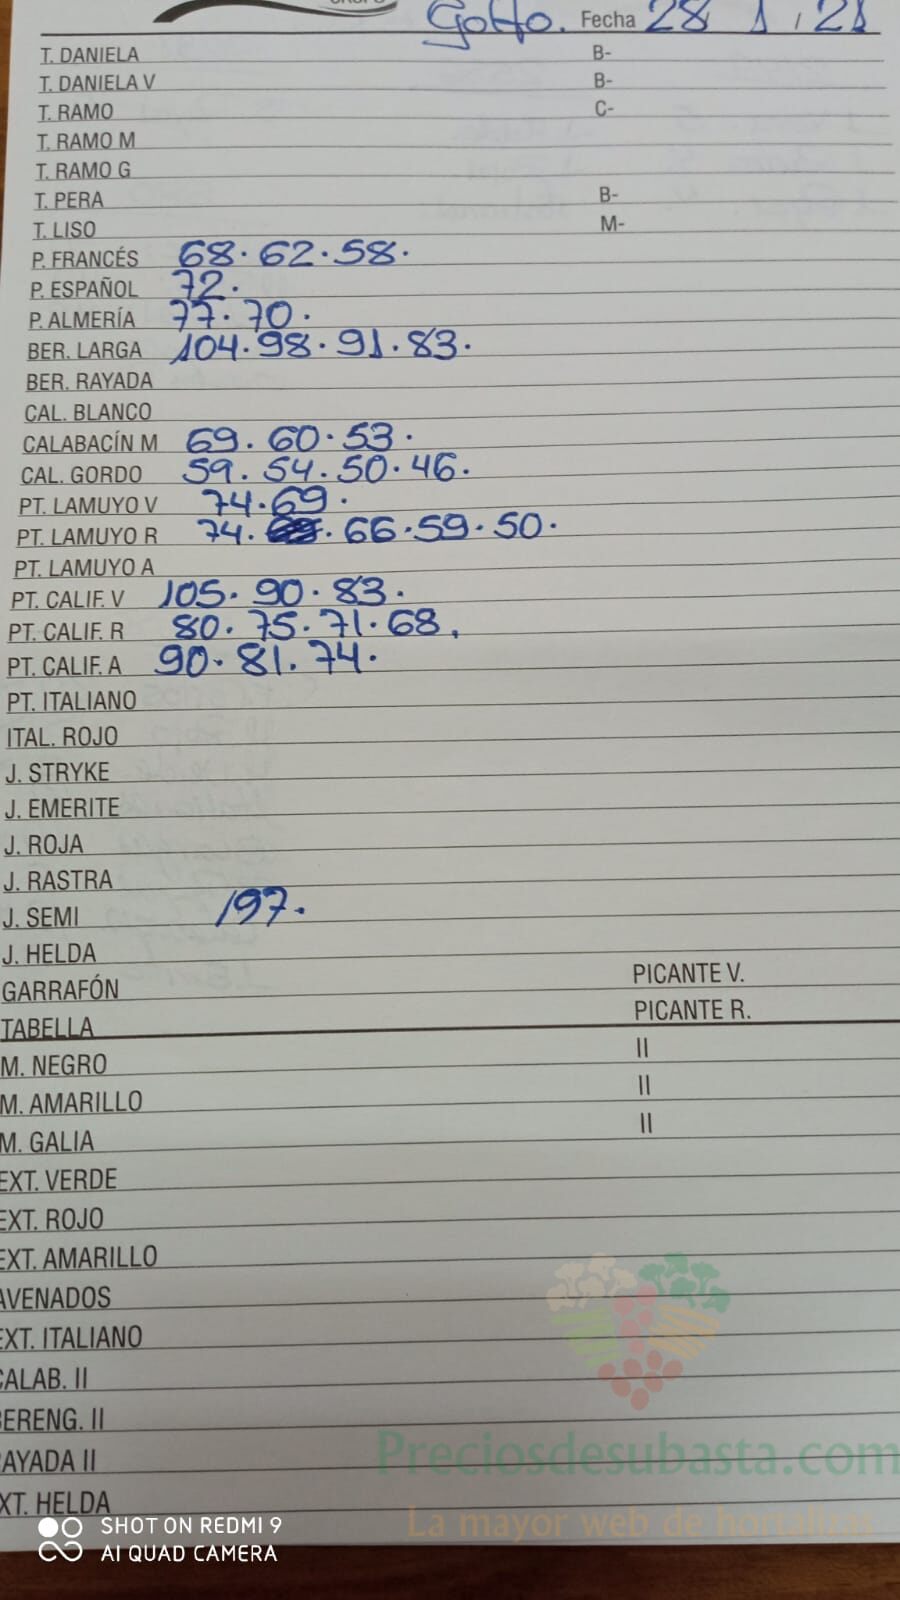 Golfo. Fecha 28 / 1 / 21
T. DANIELA B-
T. DANIELA V B-
T. RAMO C-
T. RAMO M
T. RAMO G
T. PERA B-
T. LISO M-
P. FRANCÉS 68. 62. 58.
P. ESPAÑOL 72.
P. ALMERÍA 77. 70.
BER. LARGA 104. 98. 91. 83.
BER. RAYADA
CAL. BLANCO
CALABACÍN M 69. 60. 53.
CAL. GORDO 59. 54. 50. 46.
PT. LAMUYO V 74. 69.
PT. LAMUYO R 74. 66. 59. 50.
PT. LAMUYO A
PT. CALIF. V 105. 90. 83.
PT. CALIF. R 80. 75. 71. 68.
PT. CALIF. A 90. 81. 74.
PT. ITALIANO
ITAL. ROJO
J. STRYKE
J. EMERITE
J. ROJA
J. RASTRA
J. SEMI 197.
J. HELDA
GARRAFÓN PICANTE V.
TABELLA PICANTE R.
M. NEGRO II
M. AMARILLO II
M. GALIA II
EXT. VERDE
EXT. ROJO
EXT. AMARILLO
AVENADOS
EXT. ITALIANO
CALAB. II
BERENG. II
AYADA II
XT. HELDA
Preciosdesubasta.com
La mayor web de hortalizas
SHOT ON REDMI 9
AI QUAD CAMERA